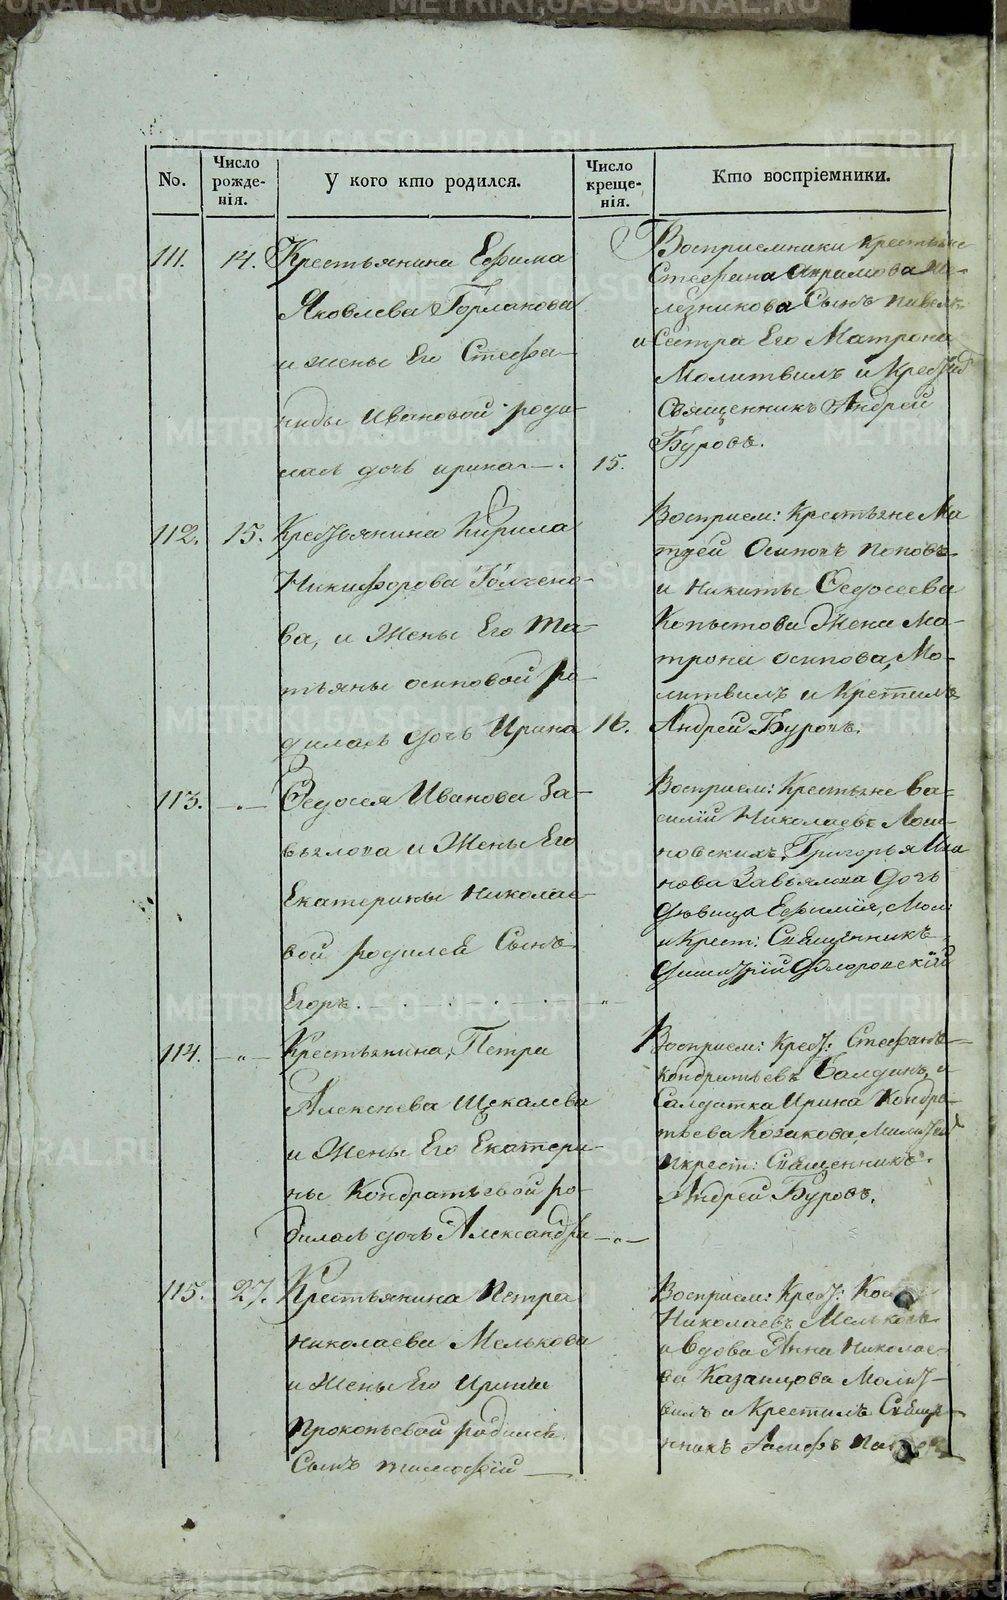 No.
Число рожде-нія.
У кого кто родился.
Число креще-нія.
Кто воспріемники.
111.
14.
Крестьянина Ефима
Яковлева Горланова
и жены Его Стефа-
ниды Ивановой роди-
лась дочь ирина—.
15.
Восприемники крестьяне
Стефана
Сынъ
и Сестра Его Матрона
Молитвилъ и Крестил
Священникъ Андрей
Буровъ.
112.
15.
Крестьянина Кирила
Никифорова
ва, и Жены Его Та-
тьяны осиповой ро-
дилась дочь Ирина
16.
Восприем: Крестьяне Ма
тфей Осиповъ Поповъ
и Никиты Федосеева
Копытова Жена Ма-
трона осипова, Мо-
литвилъ и Крестилъ
Андрей Буровъ.
113.
—.—
Федосея Иванова За-
вьялова и Жены Его
Екатерины Николае-
вой родился Сынъ
Егоръ.
"
Восприем: Крестьяне Ва-
силій Николаевъ
Григорья Ива
нова Завьялова дочь
дѣвица Ефимія, Мол:
и Крест: Священникъ
Флоровскій
114.
—"—
Крестьянина, Петра
Алексѣева Щекалева
и Жены Его Екатери-
ны Кондратьевой ро-
дилась дочь Александра
—"—
Восприем: Крест: Стефанъ
кондратьевъ Балдинъ, и
Салдатка Ирина Кондра-
тьева Козакова,
и крест: Священникъ
Андрей Буровъ.
115.
27.
Крестьянина Петра
Николаева Мелькова
и Жены Его Ирины
Прокопьевой родился
Сынъ тимофей —
Восприем: Крест:
Николаевъ Мельковъ
и Вдова Анна Николае-
ва Казанцова Молит-
вилъ и Крестилъ Свяще-
нникъ
METRIKI.GASO-URAL.RU